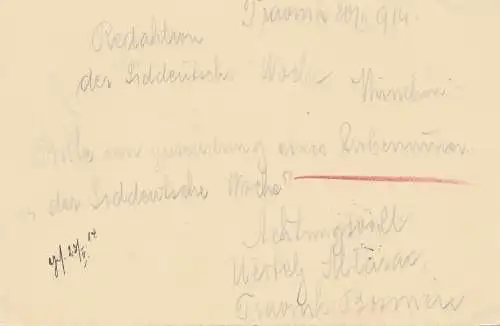 Travnik 20/II 914.
Redaktion
der Süddeutsche Woche
München
Bitte um zusendung eines Probenumer
"der Süddeutsche Woche"
Achtungsvoll
Altarac
Travnik Bosnien